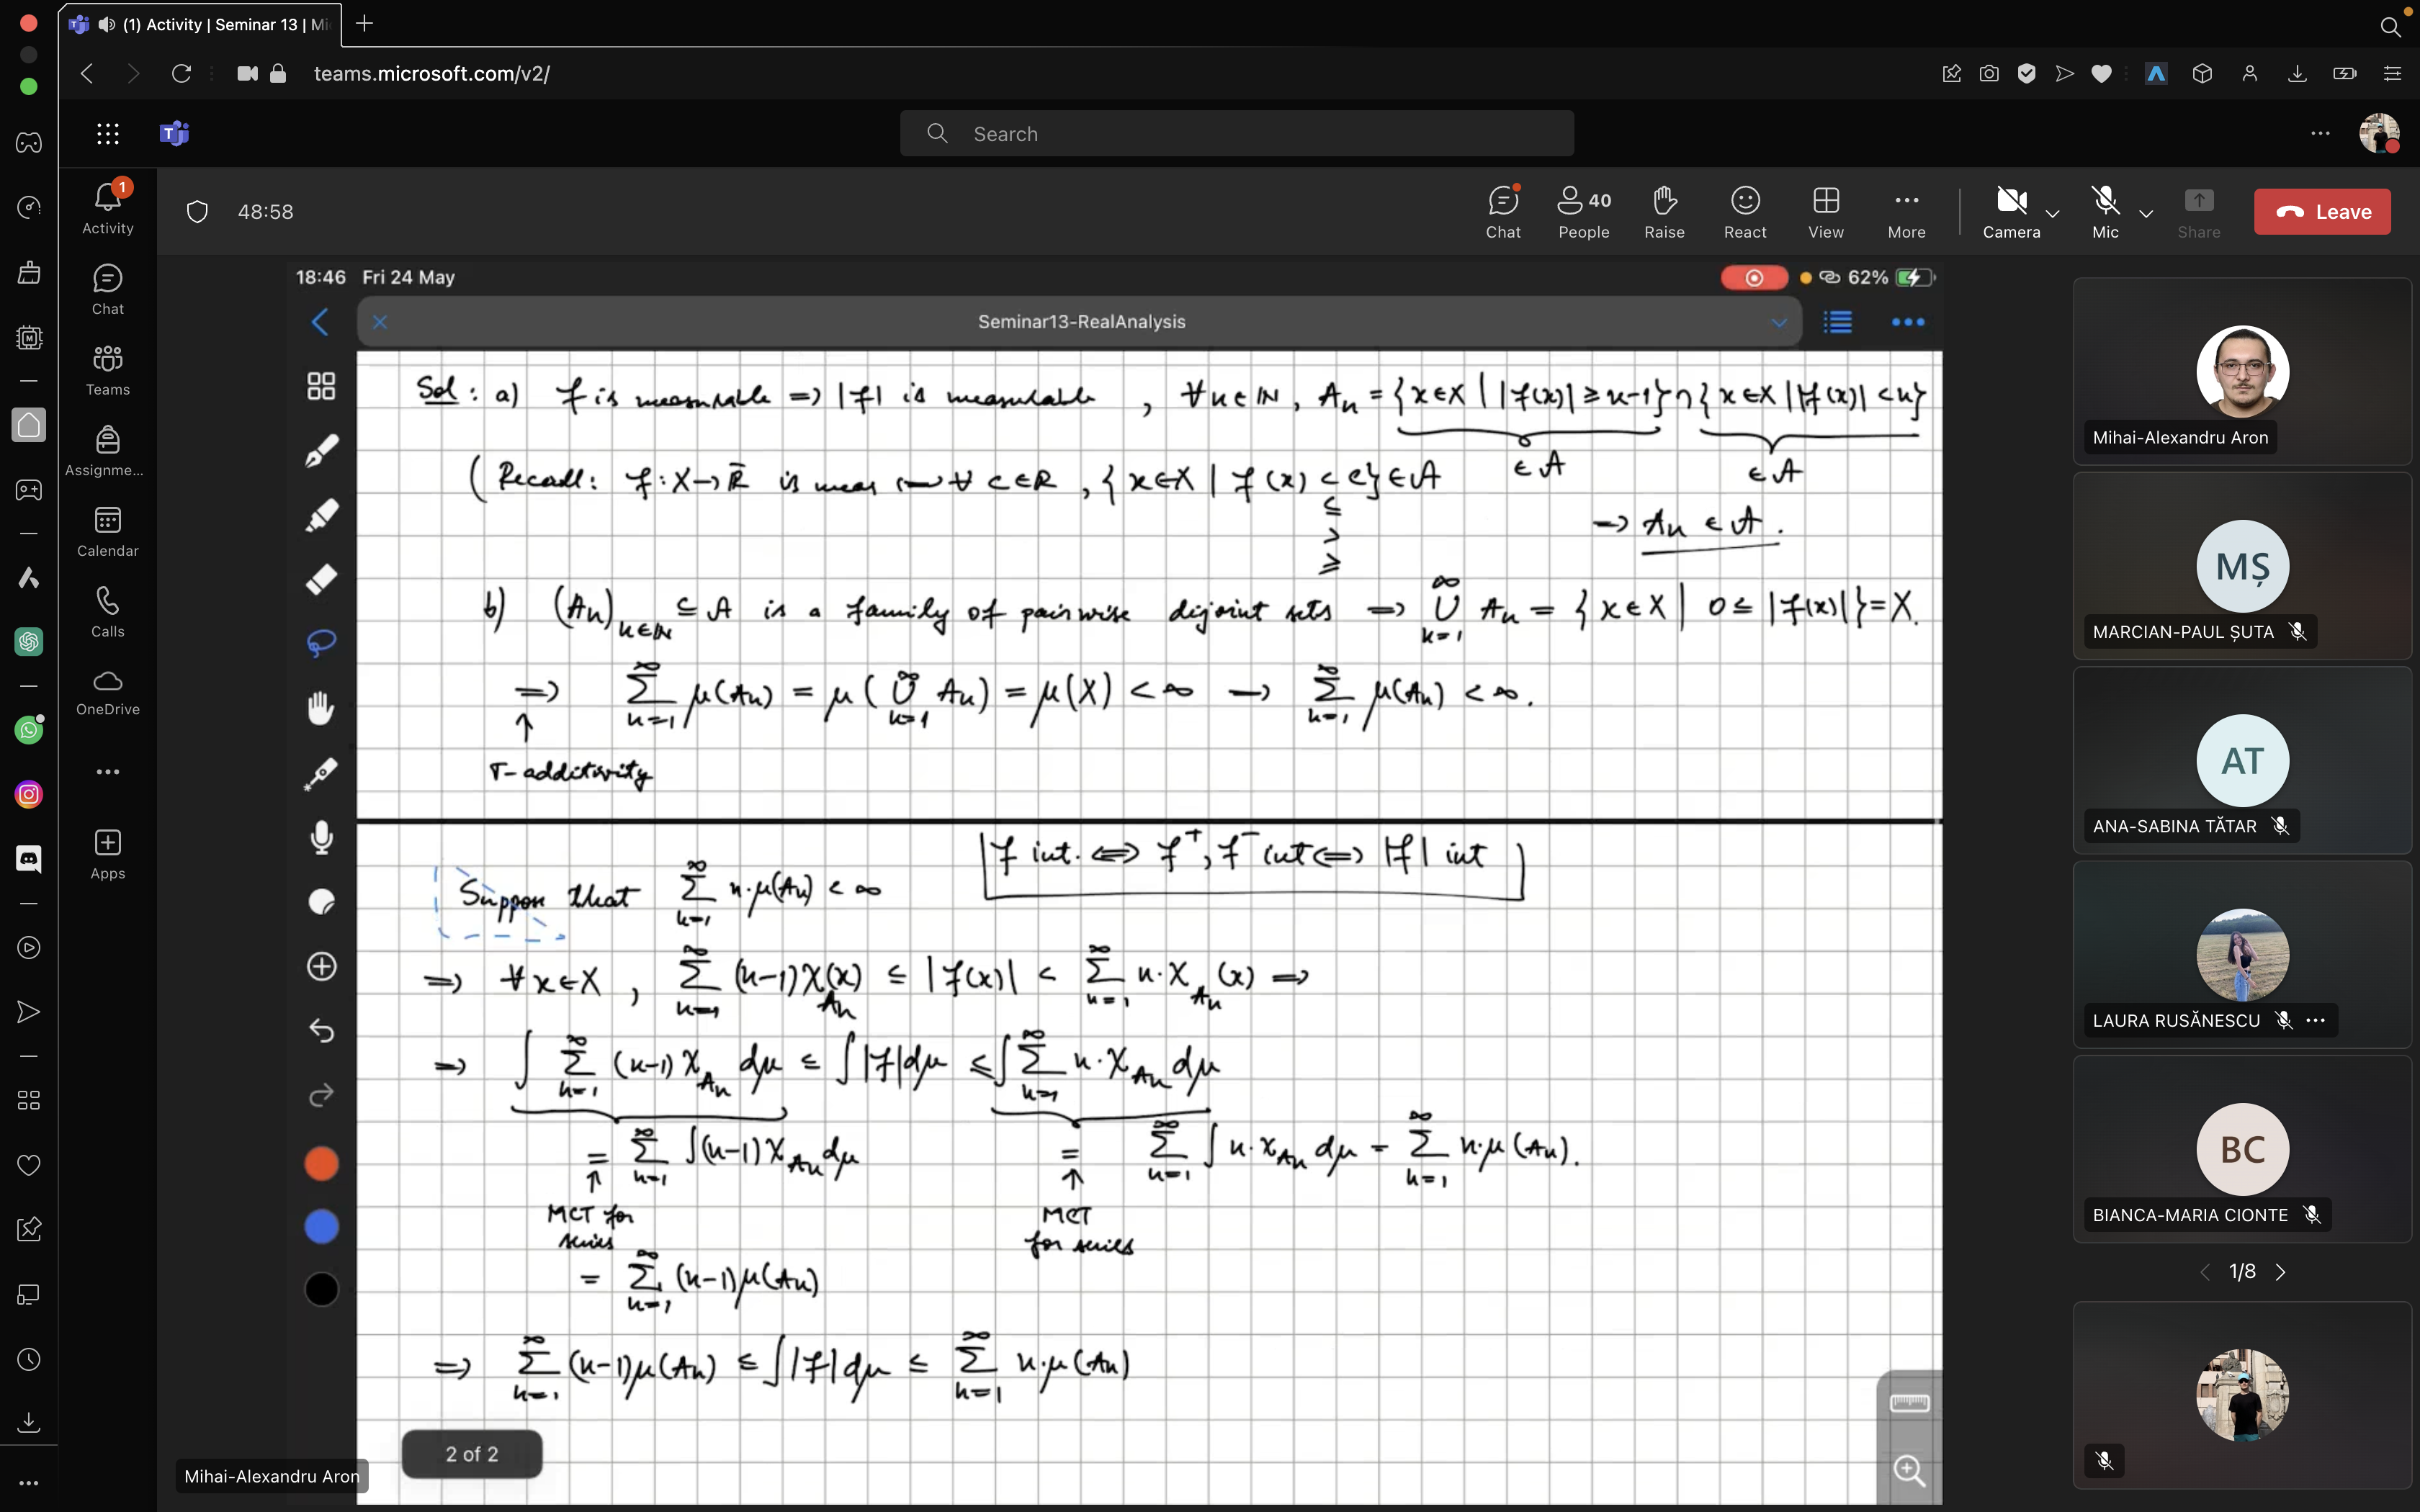 (1) Activity | Seminar 13 | Mi
teams.microsoft.com/v2/
Search
1
Activity
Chat
Teams
Assignme...
Calendar
Calls
OneDrive
Apps
48:58
Chat
40
People
Raise
React
View
More
Camera
Mic
Share
Leave
18:46 Fri 24 May
62%
Seminar13-RealAnalysis
Sol : a) f is measurable => |f| is measurable , ∀n∈ℕ, Aₙ = {x∈X | |f(x)| ≥ n-1} ∩ {x∈X | |f(x)| < n}
∈ 𝒜 ∈ 𝒜
( Recall: f : X → ℝ̄ is meas ⟺ ∀ c∈ℝ , {x∈X | f(x) < c} ∈ 𝒜
≤
>
≥
=> Aₙ ∈ 𝒜 .
b) (Aₙ)ₙ∈ℕ ⊆ 𝒜 is a family of pairwise disjoint sets => ∞ ∪ n=1 Aₙ = {x∈X | 0 ≤ |f(x)|} = X.
=> ∞ Σ n=1 μ(Aₙ) = μ( ∞ ∪ n=1 Aₙ) = μ(X) < ∞ => ∞ Σ n=1 μ(Aₙ) < ∞.
↑
σ-additivity
f int. ⟺ f⁺, f⁻ int ⟺ |f| int
Suppose that ∞ Σ n=1 n·μ(Aₙ) < ∞
=> ∀x∈X , ∞ Σ n=1 (n-1)χ_Aₙ(x) ≤ |f(x)| < ∞ Σ n=1 n·χ_Aₙ(x) =>
=> ∫ ∞ Σ n=1 (n-1)χ_Aₙ dμ ≤ ∫|f|dμ ≤ ∫ ∞ Σ n=1 n·χ_Aₙ dμ
= ∞ Σ n=1 ∫(n-1)χ_Aₙ dμ = ∞ Σ n=1 ∫ n·χ_Aₙ dμ = ∞ Σ n=1 n·μ(Aₙ).
↑ ↑
MCT for series MCT for series
= ∞ Σ n=1 (n-1)μ(Aₙ)
=> ∞ Σ n=1 (n-1)μ(Aₙ) ≤ ∫|f|dμ ≤ ∞ Σ n=1 n·μ(Aₙ)
2 of 2
Mihai-Alexandru Aron
Mihai-Alexandru Aron
MȘ
MARCIAN-PAUL ȘUTA
AT
ANA-SABINA TĂTAR
LAURA RUSĂNESCU
BC
BIANCA-MARIA CIONTE
1/8